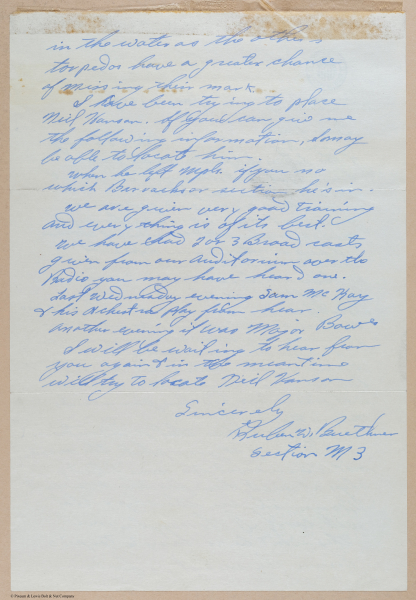 in the water as the others
torpedos have a greater chance
of missing their mark.
I have been trying to place
Neil Hanson. If you can give me
the following information, I may
be able to locate him.
When he left Mpls. if you no
which Burracks or section he's in.
We are given very good training
and every thing is of its best.
We have had 2 or 3 Broad casts
given from our Auditorium over the
Radio you may have heard one.
Last Wednesday evening Sam Mc Kay
& his Orchestra play from hear.
another evening it was Major Bowes
I will be waiting to hear from
you again & in the meantime
will try to locate Neil Hanson
Sincerely
Ruben W. Buethner
Section M 3